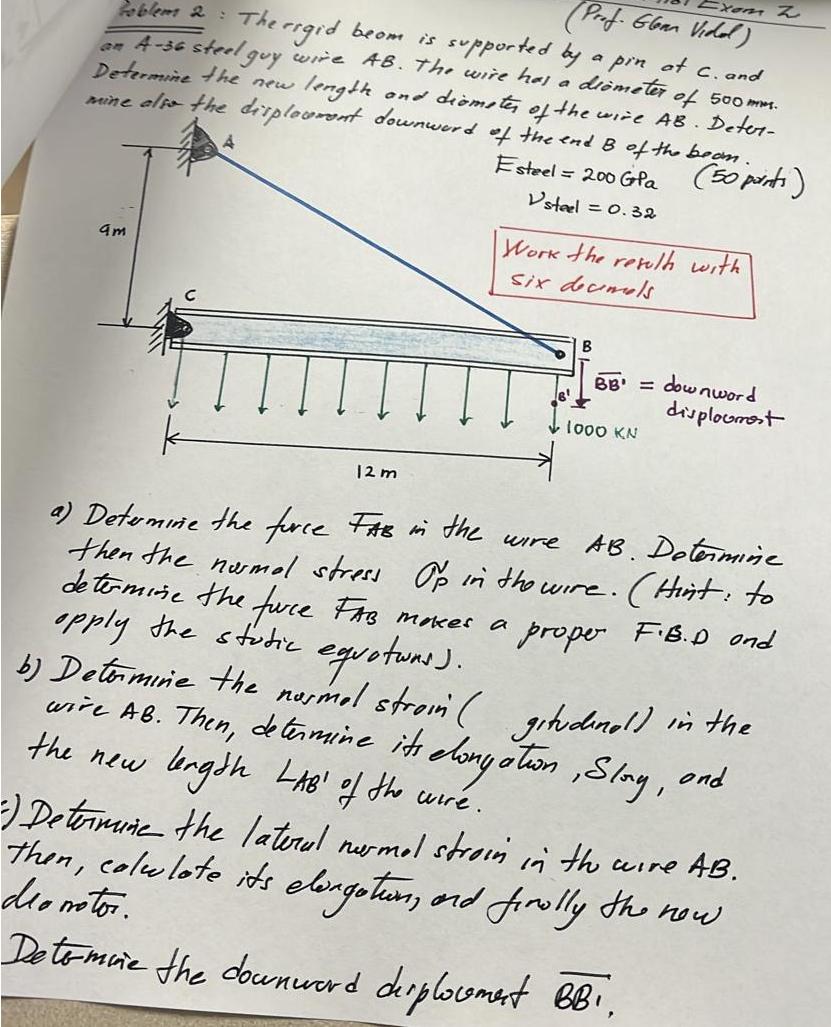 Problem 2 : The rigid beam is supported by a pin at C. and
Exam 2
(Prof. Glenn Vidal)
an A-36 steel guy wire AB. The wire has a diameter of 500 mm.
Determine the new length and diameter of the wire AB. Deter-
mine also the displacement downward of the end B of the beam.
E steel = 200 GPa (50 points)
ν steel = 0.32
Work the result with
six decimals
A
9m
C
B
B'
BB' = downward
displacement
1000 KN
12 m
a) Determine the force FAB in the wire AB. Determine
then the normal stress σp in the wire. (Hint: to
determine the force FAB makes a proper F.B.D and
apply the static equations).
b) Determine the normal strain ( gitudinal) in the
wire AB. Then, determine its elongation, δlong, and
the new length LAB' of the wire.
c) Determine the lateral normal strain in the wire AB.
Then, calculate its elongation, and finally the new
diameter.
Determine the downward displacement BB'.